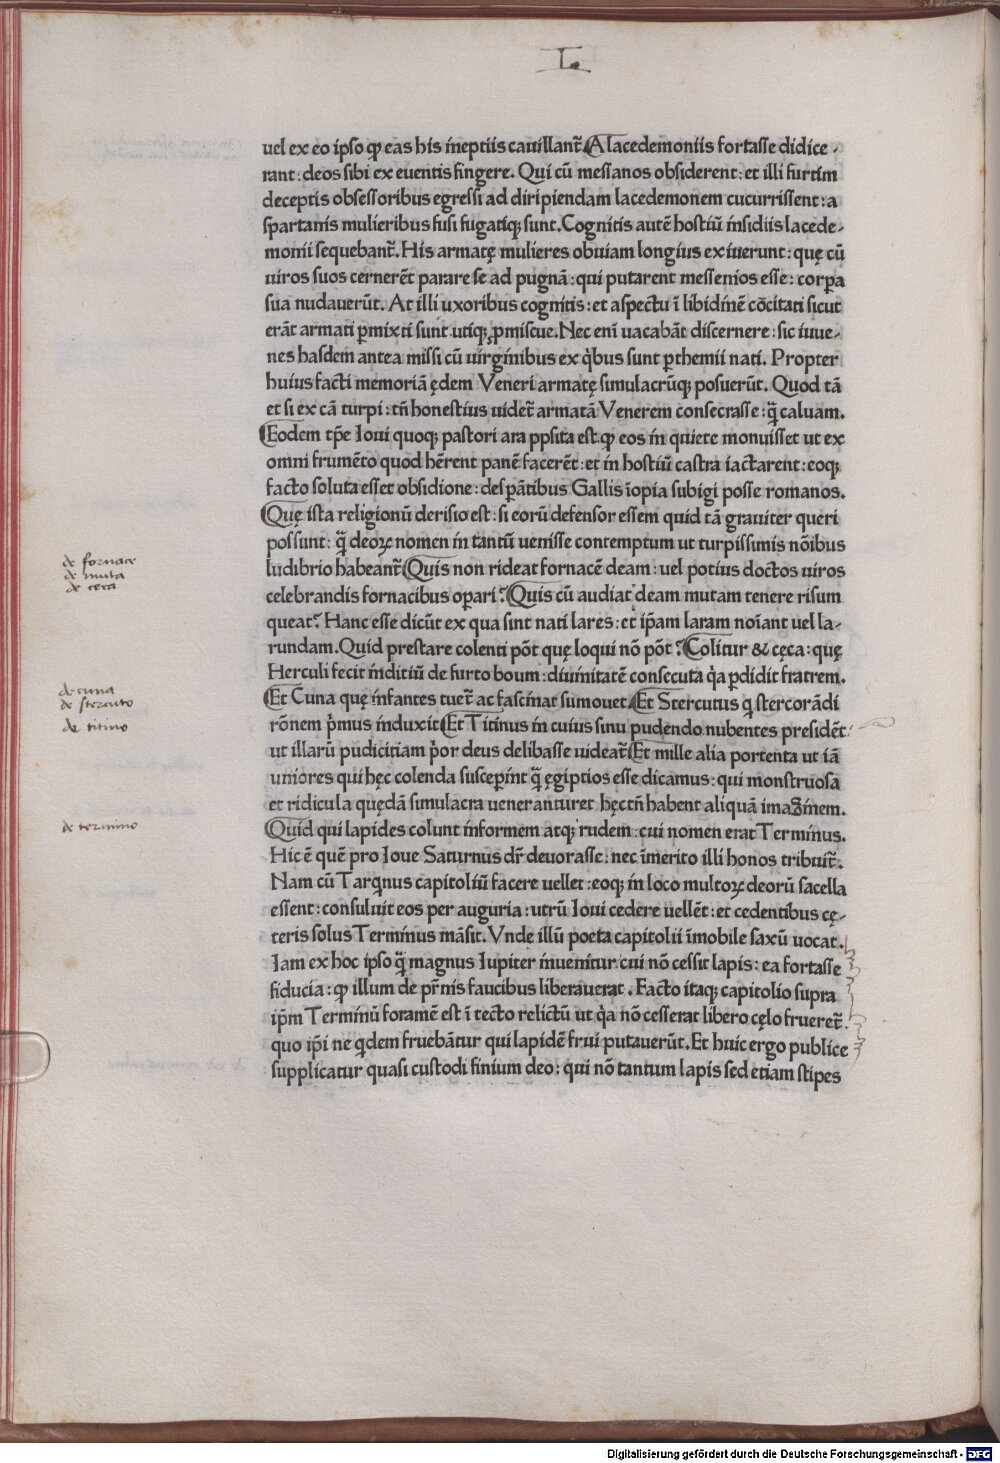 L.
uel ex eo ipso ꝙ eas his ineptiis cauillant᷑. A lacedemoniis fortasse didice-
rant: deos sibi ex euentis fingere. Qui cū messanos obsiderent: et illi furtim
deceptis obsessoribus egressi ad diripiendam lacedemonem cucurrissent: a
spartanis mulieribus fusi fugatiqꝫ sunt. Cognitis autē hostiū insidiis lacede-
monii sequebant᷑. His armatę mulieres obuiam longius exiuerunt: quę cū
uiros suos cernerēt parare se ad pugnā: qui putarent messenios esse: corpꝑa
sua nudauerūt. At illi uxoribus cognitis: et aspectu ī libidīnē cōcitati sicut
erāt armati ꝑmixti sunt utiqꝫ ꝓmiscue. Nec enī uacabāt discernere: sic iuue-
nes hasdem antea missi cū uirginibus ex q̇bus sunt ꝑthemii nati. Propter
huius facti memoriā ędem Veneri armatę simulacrūqꝫ posuerūt. Quod tā
et si ex cā turpi: tn̄ honestius uidet᷑ armatā Venerem consecrasse: q̄ caluam.
Eodem tp̄e Ioui quoqꝫ pastori ara ppsita est ꝙ eos in quiete monuisset ut ex
omni frumēto quod hērent panē facerēt: et in hostiū castra iactarent: eoqꝫ
facto soluta esset obsidione: desꝑātibus Gallis īopia subigi posse romanos.
Quę ista religionū derisio est: si eorū defensor essem quid tā grauiter queri
possunt: q̄ deoꝝ nomen in tantū uenisse contemptum ut turpissimis nōibus
ludibrio habeant᷑ Quis non rideat fornacē deam: uel potius doctos uiros
celebrandis fornacibus oꝑari? Quis cū audiat deam mutam tenere risum
queat? Hanc esse dicūt ex qua sint nati lares: et ip̄am laram noīant uel la-
rundam. Quid prestare colenti pōt quę loqui nō pōt? Colitur & cęca: quę
Herculi fecit inditiū de furto boum: diuinitatē consecuta q̇a ꝑdidit fratrem.
Et Cuna quę infantes tuet᷑ ac fascinat sumouet. Et Stercutus q stercorādi
rōnem ṗmus induxit Et Titinus in cuius sinu pudendo nubentes presidēt:
ut illarū pudicitiam ṗor deus delibasse uideat᷑ Et mille alia portenta ut iā
uniores qui hęc colenda susceꝑint q̄ ęgiptios esse dicamus: qui monstruosa
et ridicula quędā simulacra ueneranturet hęctn̄ habent aliquā imaginem.
Quid qui lapides colunt informem atqꝫ rudem: cui nomen erat Terminus.
Hic ē quē pro Ioue Saturnus dr̄ deuorasse: nec īmerito illi honos tribuit᷑.
Nam cū Tarqnus capitoliū facere uellet: eoqꝫ in loco multoꝝ deorū sacella
essent: consuluit eos per auguria: utrū Ioui cedere uellēt: et cedentibus cę-
teris solus Terminus māsit. Vnde illū poeta capitolii īmobile saxū uocat.
Iam ex hoc ipso q̄ magnus Iupiter inuenitur cui nō cessit lapis: ea fortasse
fiducia: ꝙ illum de pr̄nis faucibus liberauerat. Facto itaqꝫ capitolio supra
ip̄m Terminū foramē est ī tecto relictū ut q̇a nō cesserat libero cęlo frueret᷑.
quo ip̄i ne qdem fruebātur qui lapidē frui putauerūt. Et huic ergo publice
supplicatur quasi custodi finium deo: qui nō tantum lapis sed etiam stipes
de fornace
de muta
de ceca
de cuna
de stercuto
de titino
de termino
Digitalisierung gefördert durch die Deutsche Forschungsgemeinschaft - DFG